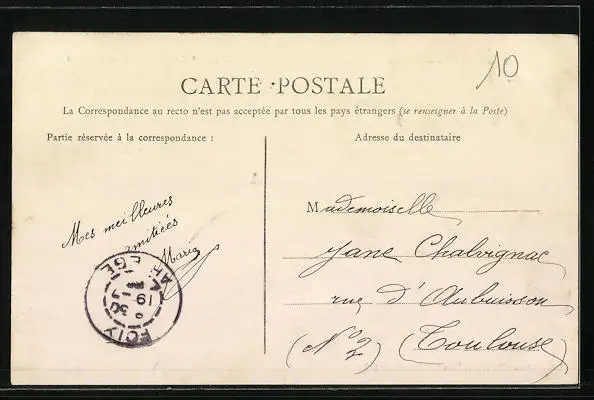 10
CARTE POSTALE
La Correspondance au recto n'est pas acceptée par tous les pays étrangers (se renseigner à la Poste)
Partie réservée à la correspondance :
Adresse du destinataire
Mes meilleures
amitiées
Maria
Mademoiselle
Jane Chalvignac
rue d'Aubuisson
(N° 2) (Toulouse)
FOIX
ARIEGE
30
19